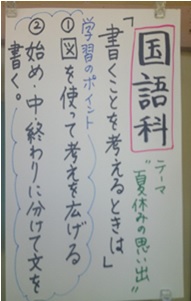 国語科
テーマ
"夏休みの思い出"
「書くことを考えるときは」
学習のポイント
①図を使って考えを広げる
②始め・中・終わりに分けて文を
書く。